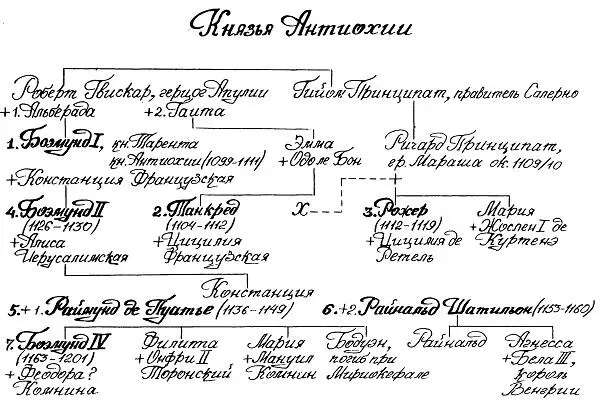 Князья Антиохии
Роберт Гвискар, герцог Апулии
Гийом Принципат, правитель Салерно
+1. Альберада
+2. Гаита
1. Боэмунд I, кн. Тарента
кн. Антиохии (1099-1111)
+Констанция Французская
Эмма
+Одо ле Бон
Ричард Принципат,
гр. Мараша ок. 1109/10
4. Боэмунд II
(1126-1130)
+Алиса
Иерусалимская
2. Танкред
(1104-1112)
+Цицилия
Французская
X
3. Рожер
(1112-1119)
+Цицилия де
Ретель
Мария
+Жослен I де
Куртенэ
Констанция
5. +1. Раймунд де Пуатье (1136-1149)
6. +2. Райнальд Шатильон (1153-1160)
7. Боэмунд IV
(1163-1201)
+Феодора?
Комнина
Филиппа
+Онфри II
Торонский
Мария
+Мануил
Комнин
Бодуэн,
погиб при
Мириокефале
Райнальд
Агнесса
+Бела III,
король
Венгрии